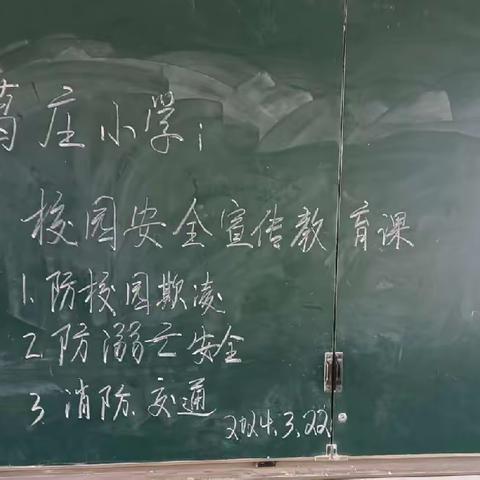 葛庄小学；
校园安全宣传教育课
1.防校园欺凌
2.防溺亡安全
3.消防.交通
2024.3.22